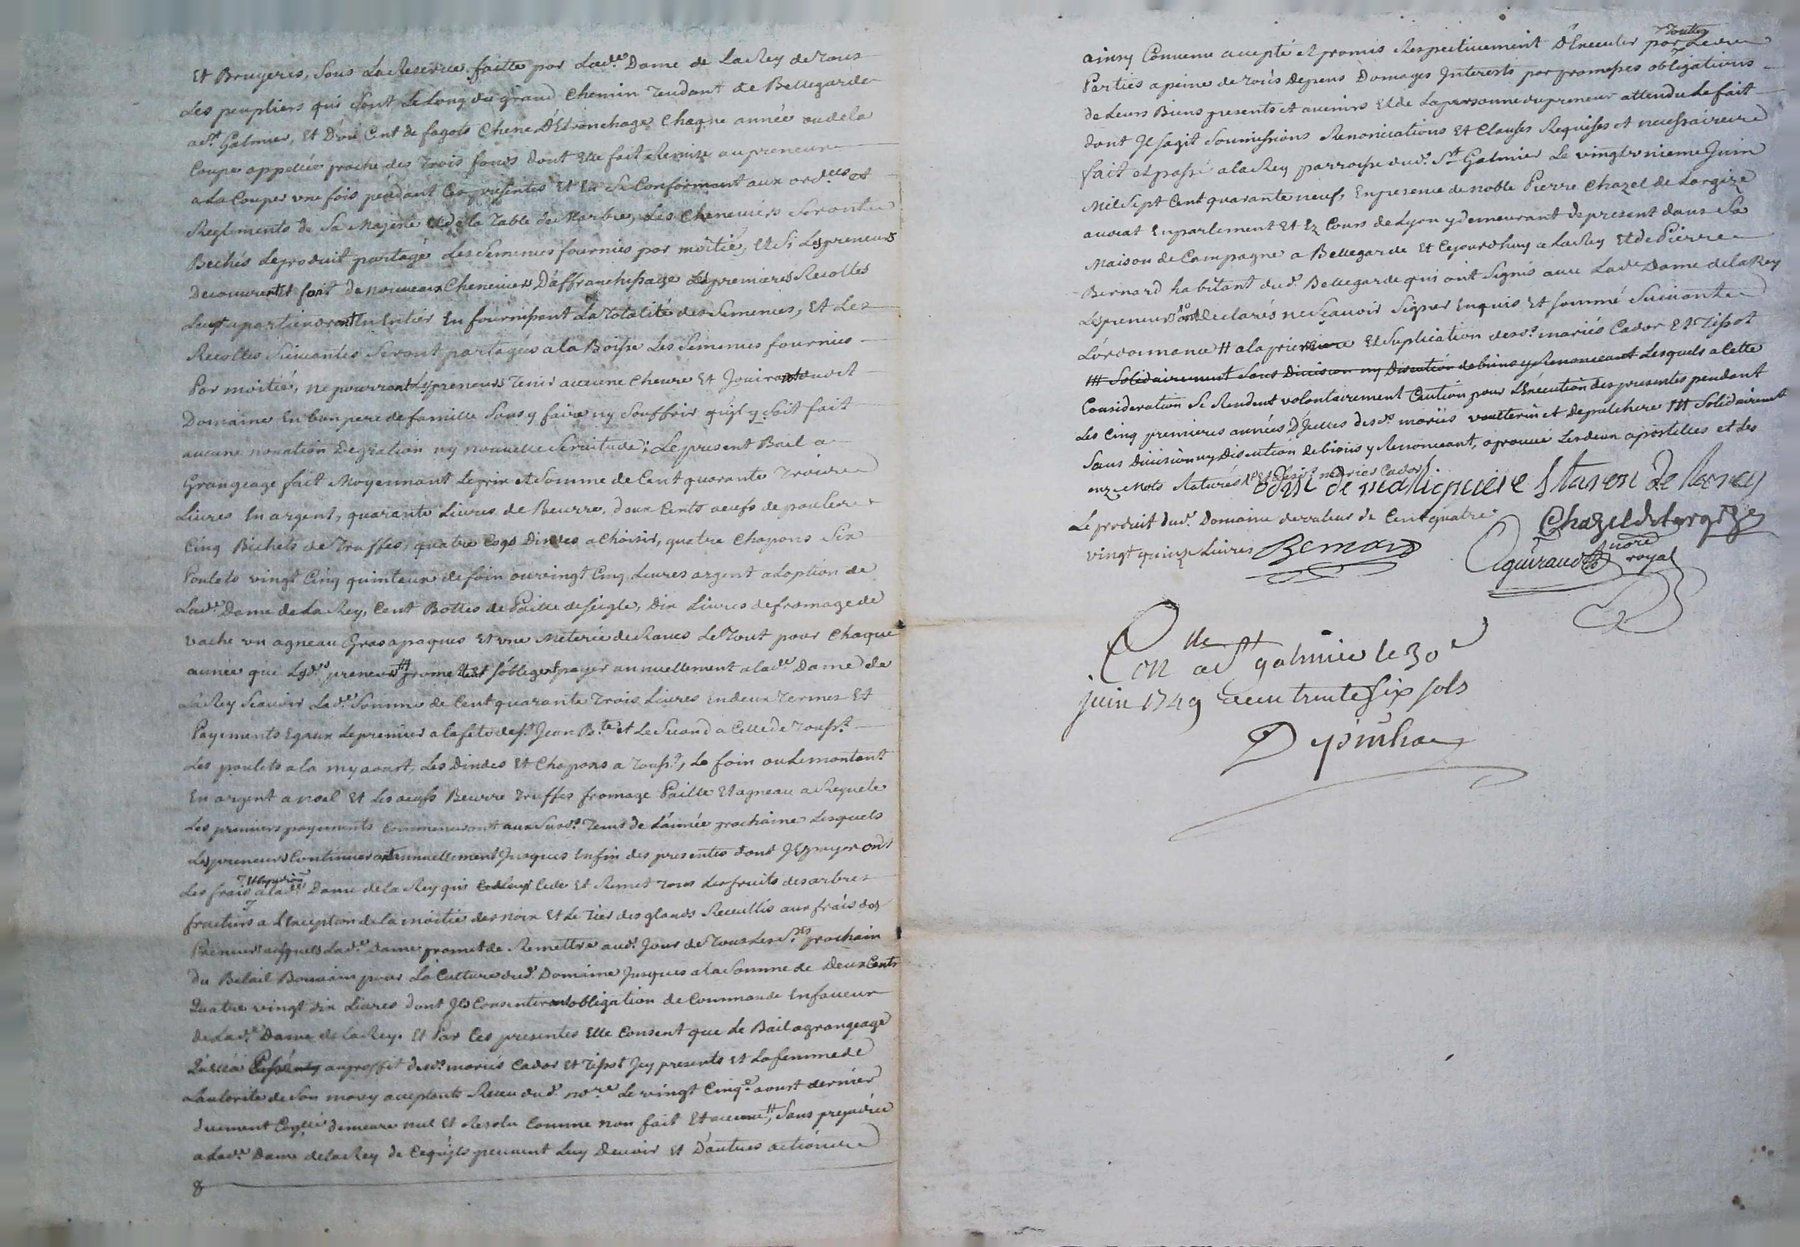 Et Bruyeres, Sous La Reserve faitte par Lade. Dame de La Rey de Tous
Les peupliers qui sont Le Long du grand Chemin Tendant de Bellegarde
a St. Galmier, Et D'un Cent de fagots Chene D'Etronchage Chaque année ou de la
Coupe appellée proche des Trois fonds dont Elle fait Remise au preneur
a La Couper une fois pendant Ces presentes Et En Se Conformant aux ordces. et
Reglements de Sa Majesté et de la Table de Marbre, Les Cheneviers Seront
Bechés Le produit partagé Les Semences fournies par moitié, Et Si Les preneurs
Decouvrent Et font de nouveaux Cheneviers D'affranchissage Les premieres Recoltes
Leur apartiendront En Entier En fournissant La Totalité des Semences, Et Les
Recoltes Suivantes Seront partagées a la Boisse Les Semences fournies
Par moitié, ne pourront Les preneurs Tenir aucune Chevre Et Jouiront dudit
Domaine En bon pere de famille Sans y faire ny Souffrir qu'il y Soit fait
aucune novation Degration ny nouvelle Servitude; Le present Bail a
Grangeage fait Moyennant Le prix et Somme de Cent quarante Trois
Livres En argent, quarante Livres de Beurre, deux Cents oeufs de poules
Cinq Bichets de Truffes, quatre Coqs Dindes a Choisir, quatre Chapons Six
Poulets vingt Cinq quintaux de foin ou vingt Cinq Livres argent a L'option de
Lade. Dame de La Rey, Cent Bottes de Paille de Seigle, Dix Livres de fromage de
vache un agneau Gras a paques Et une Meterie de Raves Le Tout pour Chaque
année que Lesds. preneurs promettent S'obligent payer annuellement a lade. Dame de
La Rey Scavoir Lade. Somme de Cent quarante Trois Livres En deux Termes Et
Payements Egaux Le premier a la fete de St. Jean Bte. et Le Second a Celle de Toussts.
Les poulets a la my aoust, Les Dindes Et Chapons a Toussts., Le foin ou Le montant
En argent a noel Et Les oeufs Beurre Truffes fromage Paille Et agneau a Requete
Les premiers payements Commenceront aux Susds. Tems de L'année prochaine Lesquels
Les preneurs Continueront annuellement Jusques En fin des presentes dont Ils payeront
Les frais Et Expedition a lade. Dame de la Rey qui Leur Cede Et Remet Tous Les fruits des arbres
fruitiers a L'Exception de la moitié des noix Et Le Tier des glands Recueillis aux frais des
Preneurs auxquels Lade. Dame promet de Remettre aud. Jour de Tous Les Sts. prochain
Du Betail Bouvain pour La Culture dud. Domaine Jusques a la Somme de Deux Cents
Quatre vingt dix Livres dont Ils Consentiront obligation de Commande En faveur
de Lade. Dame de La Rey. Et Par Ces presentes Elle Consent que Le Bail a grangeage
au proffit desds. mariés Cador Et Tissot Icy presents Et La femme de
L'autorité de Son mary acceptants Receu dud. nore. Le vingt Cinqe. aoust dernier
duement Conllé demeure nul Et Resolu Comme non fait Et avenu, Sans prejudice
a Lade. Dame de La Rey de Ce qu'ils peuvent Luy Devoir Et D'autres actions
ainsy Convenu accepté et promis Respectivement D'Executer par Toutes Les
Parties a peine de Tous Depens Domages Interests par promesses obligations
de Leurs Biens presents et avenirs Et de La personne du preneur attendu Le fait
dont Il S'agit Soumissions Renonciations Et Clauses Requises et necessaires
fait et passé a la Rey parroisse dud. St. Galmier Le vingt unieme Juin
Mil Sept Cent quarante neuf, En presence de noble Pierre Chazel de Lorgize
avocat En parlement Et Ez Cours de Lyon y demeurant de present dans Sa
Maison de Campagne a Bellegarde Et Cejourd'huy a La Rey Et de Pierre
Bernard habitant dud. Bellegarde qui ont Signés avec Lade. Dame de La Rey
Les preneurs ont Declarés ne Scavoir Signer Enquis Et Sommé Suivant
L'ordonnance # a la priere Et Suplication desds. mariés Cador Et Tissot
### Solidairement Sans Division ny Discution de biens y Renonceant Lesquels a Cette
Consideration Se Rendent volontairement Caution pour L'Execution des presentes pendant
Les Cinq premieres années D'Jcelles desds. mariés et ### Solidairement
Sans Division ny Discution de biens y Renonceant, aprouvé Les deux apostilles et Les
onze Mots Raturés
Le produit dud. Domaine de valeur de Cent quatre
vingt quinze Livres
Bernard
Chazel de Lorgize
Aguiraud nore royal
Conllé a St galmier le 30e
juin 1749 receu trente six sols